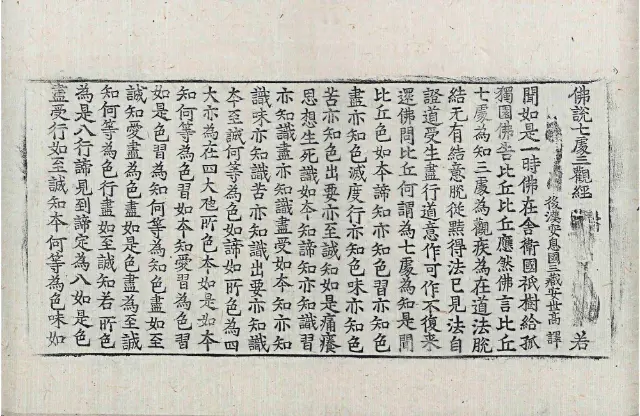 佛說七處三觀經 若
後漢安息國三藏安世高 譯
聞如是一時佛在舍衛國祇樹給孤
獨園佛告比丘比丘應然佛言比丘
七處為知三處為觀疾為在道法脫
結无有結意脫從黠得法已見法自
證道受生盡行道意作可作不復來
還佛問比丘何謂為七處為知是聞
比丘色如本諦知亦知色習亦知色
盡亦知色滅度行亦知色味亦知色
苦亦知色出要亦至誠知如是痛癢
思想生死識如本知諦知亦知識習
亦知識盡亦知識盡受如本知亦知
識味亦知識苦亦知識出要亦知識
本至誠何等為色如諦如所色為四
大亦為在四大虺所色本如是如本
知何等為色習如本知愛習為色習
如是色習為知何等為知色盡如至
誠知愛盡為色盡如是色盡為至誠
知何等為色行盡如至誠知若所色
為是八行諦見到諦定為八如是色
盡受行如至誠知本何等為色味如